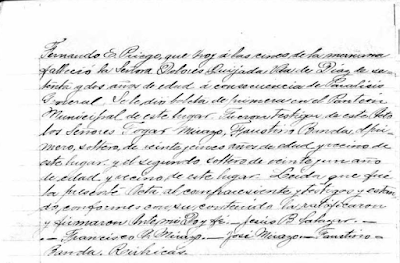 Fernando E. Priego, que hoy á las cinco de la mañana
falleció la Señora Dolores Quijada Vda. de Diaz de se-
tenta y dos años de edad á consecuencia de Parálisis
General. Se le dió boleta de primera en el Panteon
Municipal de este lugar. Fueron testigos de este acto
los Señores Edgar Mirazo, Faustino Banda, el pri-
mero, soltero, de veinte y cinco años de edad y vecino de
este lugar y el segundo soltero de veinte y un año
de edad y vecino de este lugar. Leida que fué
la presente Acta al compareciente y testigos y estan-
do conformes con su contenido la ratificaron
y firmaron. Ante mí Doy fe. - Jesús B. Salazar. -
- Francisco A. Mirazo. - José Mirazo - Faustino
Banda. Rúbricas.